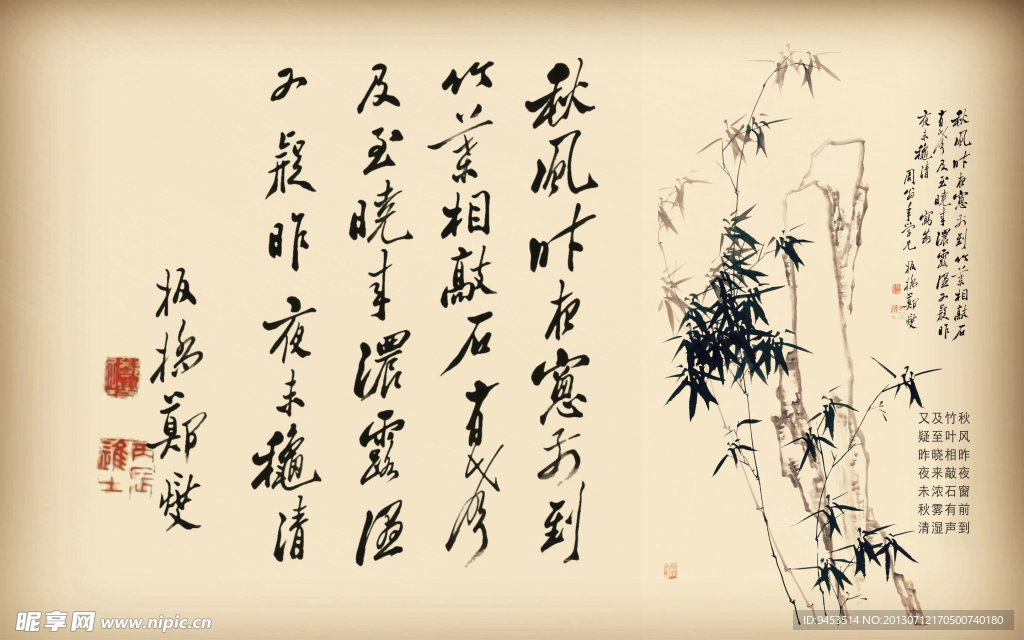 秋風昨夜窓前到
竹葉相敲石有聲
及至曉来濃露湿
又疑昨夜未穐清
板橋鄭燮
丙辰進士
秋風昨夜窓前到竹葉相敲石
有聲及至曉来濃露湿又疑昨
夜未穐清
年學兄 板橋鄭燮
秋风昨夜窗前到
竹叶相敲石有声
及至晓来浓雾湿
又疑昨夜未秋清
昵享网 www.nipic.cn
ID:9453514 NO:20130712170500740180